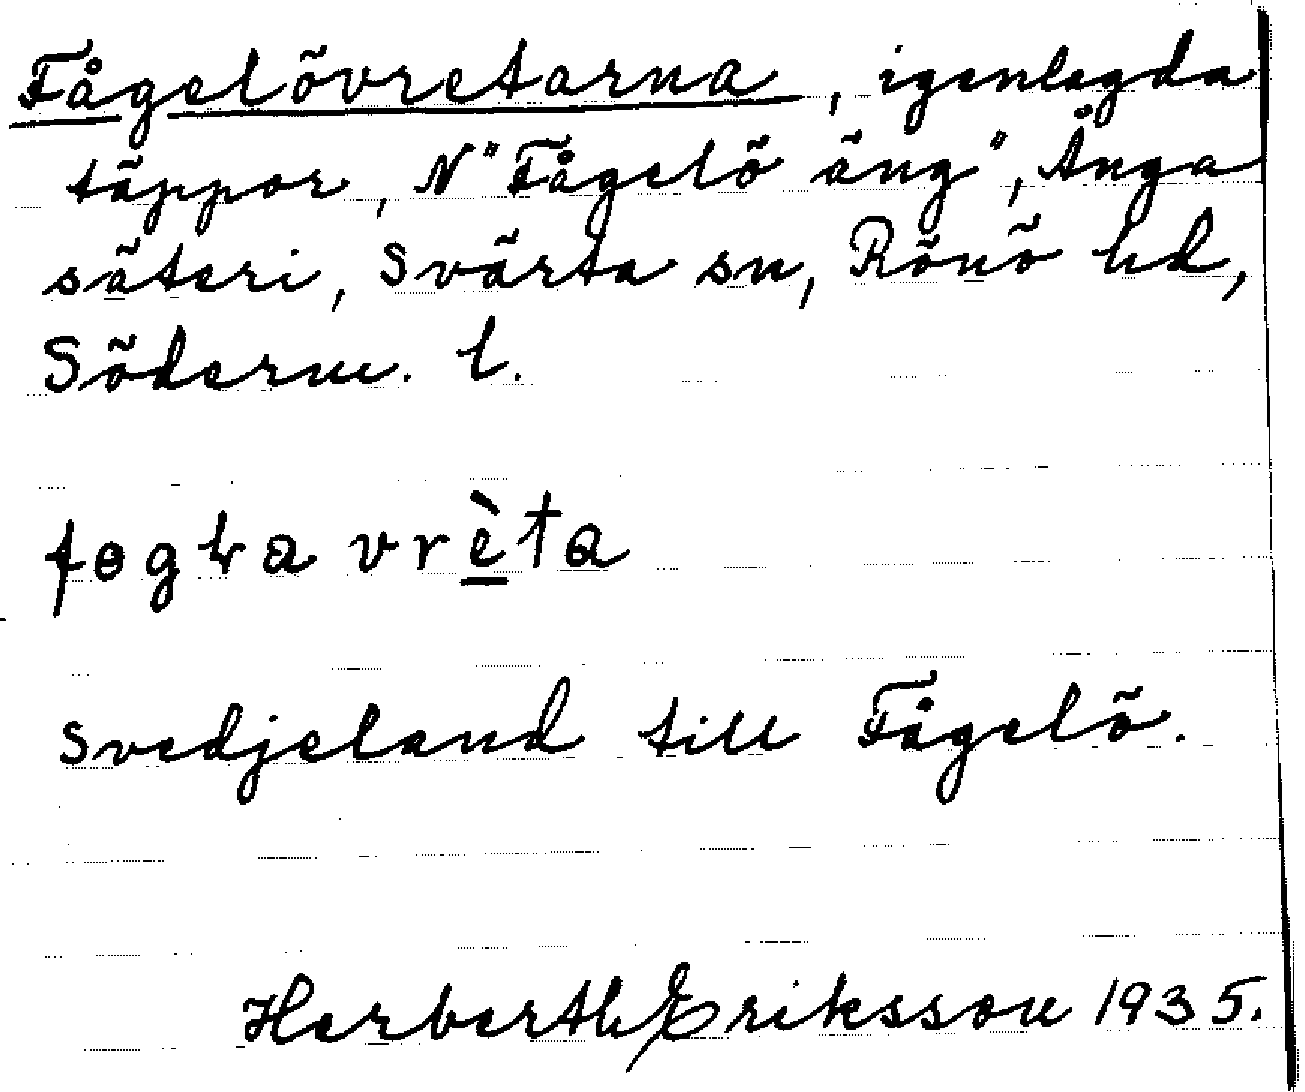 Fågelövretarna, igenlagda
täppor, N "Fågelö äng", Ånga
säteri, Svärta sn, Rönö hd,
Söderm. l.
vrèta
Svedjeland till Fågelö.
Herberth Eriksson 1935.